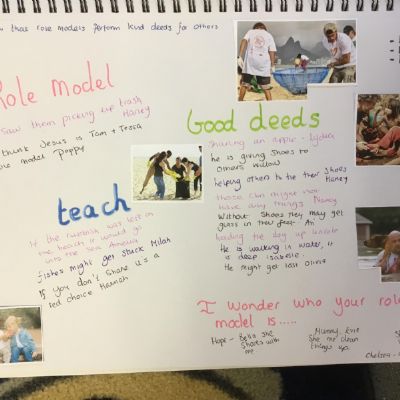 that role models perform kind deeds for others
Role Model
saw them picking up trash
Harley
think Jesus is Tom + Tessa
role model Poppy
Good deeds
Sharing an apple - Lydia
he is giving shoes to
others Willow
helping others to tie their Shoes
Harley
have any things Nancy
Without Shoes they may get
glass in their feet - Ari
holding the dog up
He is walking in water, it
is deep Isabelle.
He might get lost Olivia
teach
If the rubbish was left on
the beach it would go
into the sea Amelia
fishes might get stuck Milah
If you don't share its a
red choice Hamish
I Wonder who your role
model is.....
Hope - Bella she
Shares with
me
Mummy Evie
She me clean
things up.
Chelsea -